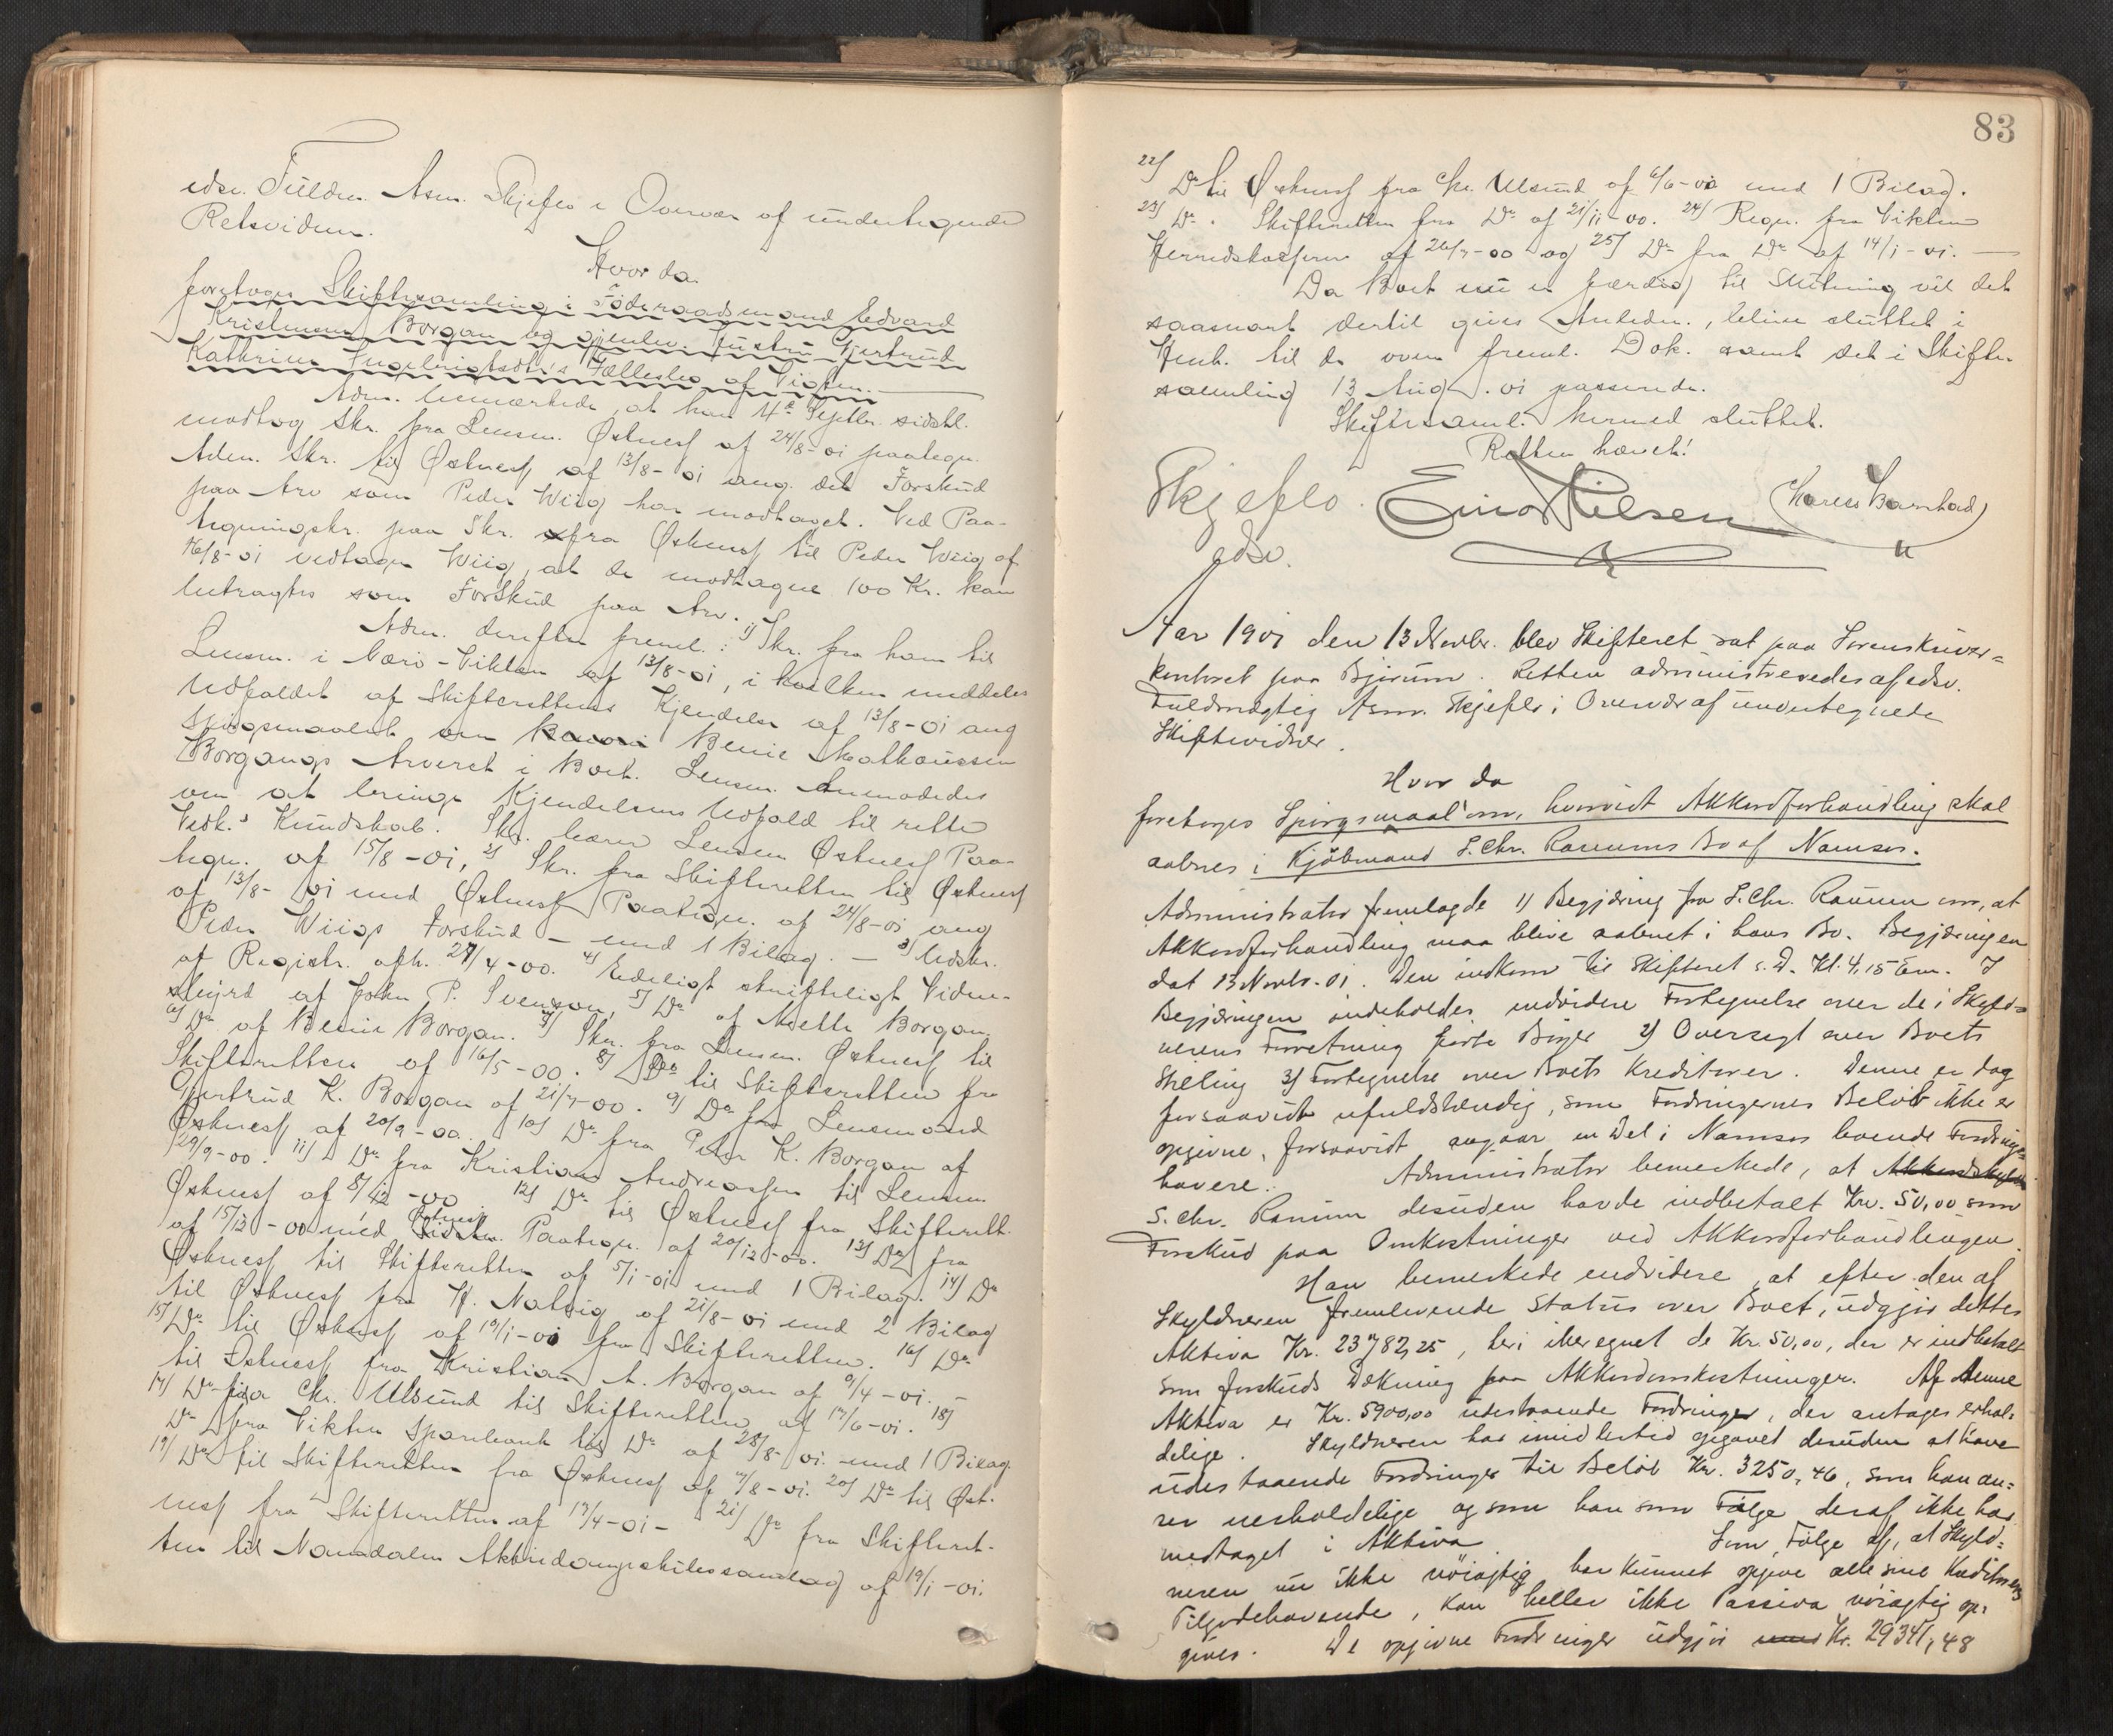 edsv. Fuldm. Asm. Skjeflo i Overvær af undertegnede
Retsvidner.
Hvor da
foretoges Skiftesamling i Föderaadsmand Edvard
Kristensen Borgan og gjenlev. Hustru Gjertrud
Kathrine Ingebrigtsdtr's Fællesbo af Vigten.
Adm. bemærkede, at han 4de Septbr. sidstl.
modtog Skr. fra Lensm. Østnes af 24/8-01 paategn.
Adm. Skr. til Østnes af 13/8-01 ang. det Forskud
paa Arv som Peder Wiig har modtaget. Ved Paa-
tegningskr. paa Skr. fra Østnes til Peder Wiig af
16/8-01 vedtager Wiig, at de modtagne 100 Kr. kan
betragtes som Forskud paa Arv.
Adm. derefter freml.: 1) Skr. fra ham til
Lensm. i Nærö-Vikten af 13/8-01, i hvilken meddeles
Udfaldet af Skifterettens Kjendelse af 13/8-01 ang
Spörgsmaalet om Benie Mathæussen
Borgangs Arveret i Boet. Lensm. anmodedes
om at bringe Kjendelsens Udfald til rette
Vedk.s Kundskab. Skr. bærer Lensm Østnes Paa-
tegn. af 15/8-01, 2) Skr. fra Skifteretten til Østnes
af 13/8-01 med Østnes Paategn. af 24/8-01 ang
Peder Wiigs Forskud - med 1 Bilag. - 3) Udskr.
af Registr. afh. 27/4-00. 4) Endeligt skrifteligt Vidne-
sbyrd af John P. Svenson, 5) Do af Mette Borgan
6) Do af Benie Borgan. 7) Skr. fra Lensm. Østnes til
Skifteretten af 16/5-00. 8) Do til Skifteretten fra
Gjertrud K. Borgan af 21/7-00. 9) Do fra Lensmand
Østnes af 20/9-00. 10) Do fra Peter K. Borgan af
29/9-00. 11) Do fra Kristian Andreassen til Lensm
Østnes af 8/12-00 12) Do til Østnes fra Skifterett.
af 15/12-00 med Østnes Paategn. af 20/12-00. 13) Do fra
Østnes til Skifteretten af 5/1-01 med 1 Bilag. 14) Do
til Østnes fra H. Natvig af 21/8-01 med 2 Bilag
15) Do til Østnes af 19/1-01 fra Skifteretten. 16) Do
til Østnes fra Kristian A. Borgan af 9/4-01. -
17) Do fra Chr. Ulsund til Skifteretten af 17/6-01. 18)
Do fra Vikten Sparebank til Do af 28/8-01. med 1 Bilag.
19) Do til Skifteretten fra Østnes af 7/8-01. 20) Do til Øst-
nes fra Skifteretten af 17/4-01 - 21) Do fra Skifteret-
ten til Namdalen Aktiedampskibssamlag af 19/1-01.
83
22) Do til Østnes fra Chr. Ulsund af 6/6-01 med 1 Bilag.
23) Do. Skifteretten fra Do af 21/11-00. 24) Regn. fra Vikten
Herredskasserer af 26/7-00 og 25) Do fra Do af 14/1-01.
Da Boet nu er færdig til Slutning vil det
saasnart dertil gives Anledn., blive sluttet i
Henh. til de oven freml. Dok. samt det i Skifte-
samling 13 Aug. 01 passerede.
Skiftesaml. hermed sluttet.
Retten hævet!
Skjeflo. Einar Nilsen
edsv.
Aar 1901 den 13 Novbr. blev Skifteret sat paa Sorenskriver=
kontoret paa Bjørum. Retten administreredes af edsv.
Fuldmægtig Asm. Skjeflo i Overvær af undertegnede
Skiftevidner.
Hvor da
foretoges Spörgsmaal om, hvorvidt Akkordforhandling skal
aabnes i Kjöbmand S. Chr. Ranums Bo af Namsos.
Administrator fremlagde 1) Begjæring fra S. Chr. Ranum om, at
Akkordforhandling maa blive aabnet i hans Bo. Begjæringen
dat 13 Novbr. 01. Den indkom til Skifteret s. D. Kl. 4,15 Em. I
Begjæringen indeholdes endvidere Fortegnelse over de i Skyld=
nerens Forretning førte Böger 2) Oversigt over Boets
Stilling 3) Fortegnelse over Boets Kreditorer. Denne er dog
forsaavidt ufuldstændig, som Fordringernes Belöb ikke er
opgivne, forsaavidt angaar en Del i Namsos boende Fordrings=
havere. Administrator bemerkede, at Akkordskyld
S. Chr. Ranum desuden havde indbetalt Kr. 50,00 som
Forskud paa Omkostninger ved Akkordforhandlingen.
Han bemerkede endvidere, at efter den af
Skyldneren fremleverede Status over Boet, udgjör dettes
Aktiva Kr. 23782,25, heri iberegnet de Kr. 50,00, der er indbetalt
som forskuds Dækning paa Akkordomkostninger. Af denne
Aktiva er Kr. 5900,00 udestaaende Fordringer, der antages erhol=
delige. Skyldneren har imidlertid opgivet desuden at have
udestaaende Fordringer til Belöb Kr. 3250,46, som han an=
ser uerholdelige og som han som Fölge deraf ikke har
medtaget i Aktiva. Som Fölge af, at Skyld=
neren nu ikke nöiagtig har kunnet opgive alle sine Kreditorers
Tilgodehavende, kan heller ikke Passiva nöiagtig op=
gives. De opgivne Fordringer udgjör Kr. 29341,48